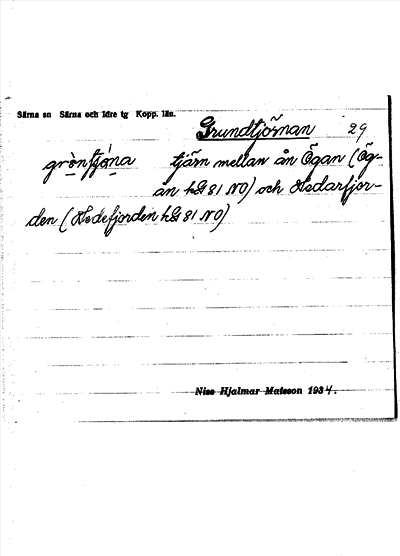 Särna sn Särna och Idre tg Kopp. län.
Grundtjörnan 29
gròn̥tjó̥na tjärn mellan ån Ögan (Ög-
ån hbl 81 NO) och Hedarfjor-
den (Hedefjorden hbl 81 NO)
Niss Hjalmar Matsson 1934.